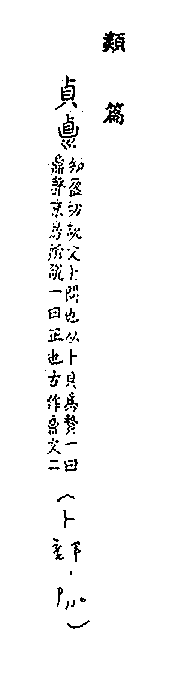 類篇
貞𥃝
知盈切說文卜問也从卜貝為贄一曰
鼎省聲京房所說一曰正也古作𥃝文二
(卜部·P110)